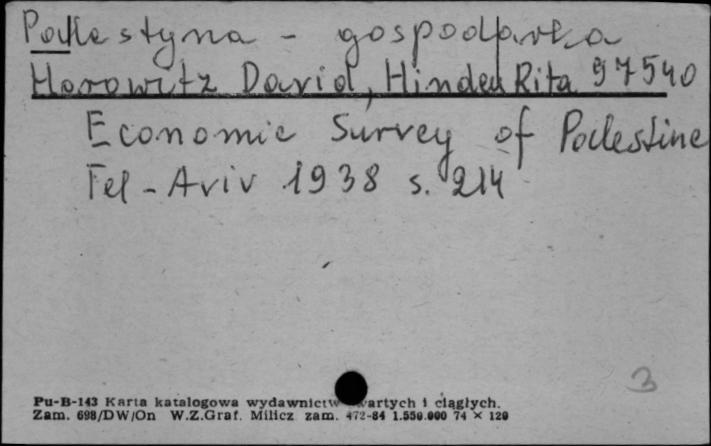 Palestyna - gospodarka
Horowitz David, Hinden Rita 97540
Economic Survey of Palestine
Tel-Aviv 1938 s. 214
3
Pu-B-143 Karta katalogowa wydawnictw zwartych i ciągłych.
Zam. 698/DW/On W.Z.Graf. Milicz zam. 472-84 1.550.000 74 × 120